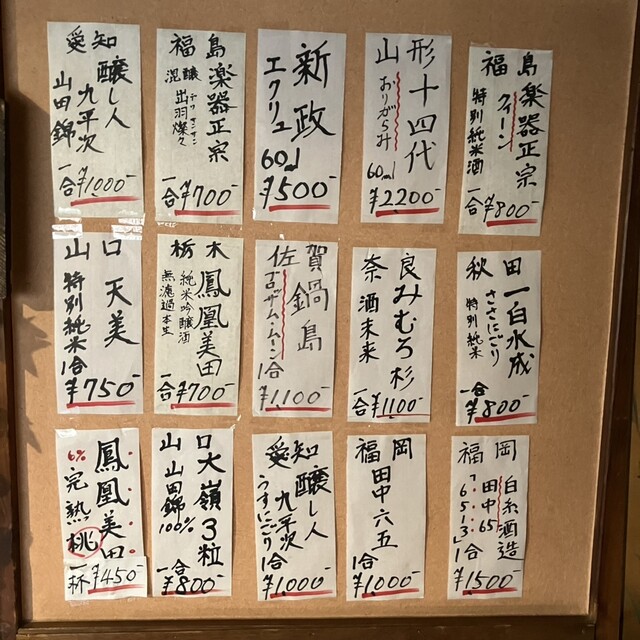 愛知
醸し人
九平次
山田錦
一合
¥1000-
福島
楽器正宗
混醸
デワサンサン
出羽燦々
一合
¥700-
新政
エクリュ
60ml
¥500-
山形
十四代
おりがらみ
60ml
¥2200-
福島
楽器正宗
クィーン
特別純米酒
一合
¥800-
山口
天美
特別純米
1合
¥750-
栃木
鳳凰美田
純米吟醸酒
無濾過本生
一合
¥700-
佐賀
鍋島
ブロッサム・ムーン
1合
¥1,100-
奈良
みむろ杉
酒未来
一合
¥1100-
秋田
一白水成
ささにごり
特別純米
一合
¥800-
鳳凰美田
6%
完熟桃
一杯
¥450-
山口
大嶺3粒
山田錦
100%
一合
¥800-
愛知
醸し人
九平次
うすにごり
1合
¥1,000-
福岡
田中六五
1合
¥1000-
福岡
白糸酒造
田中65
「6513」
1合
¥1500-